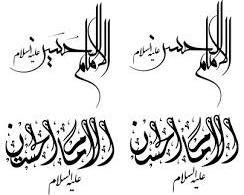 الامام حسن عليه السلام
الامام حسين عليه السلام
الامام الحسن
عليه السلام
الامام الحسين
عليه السلام